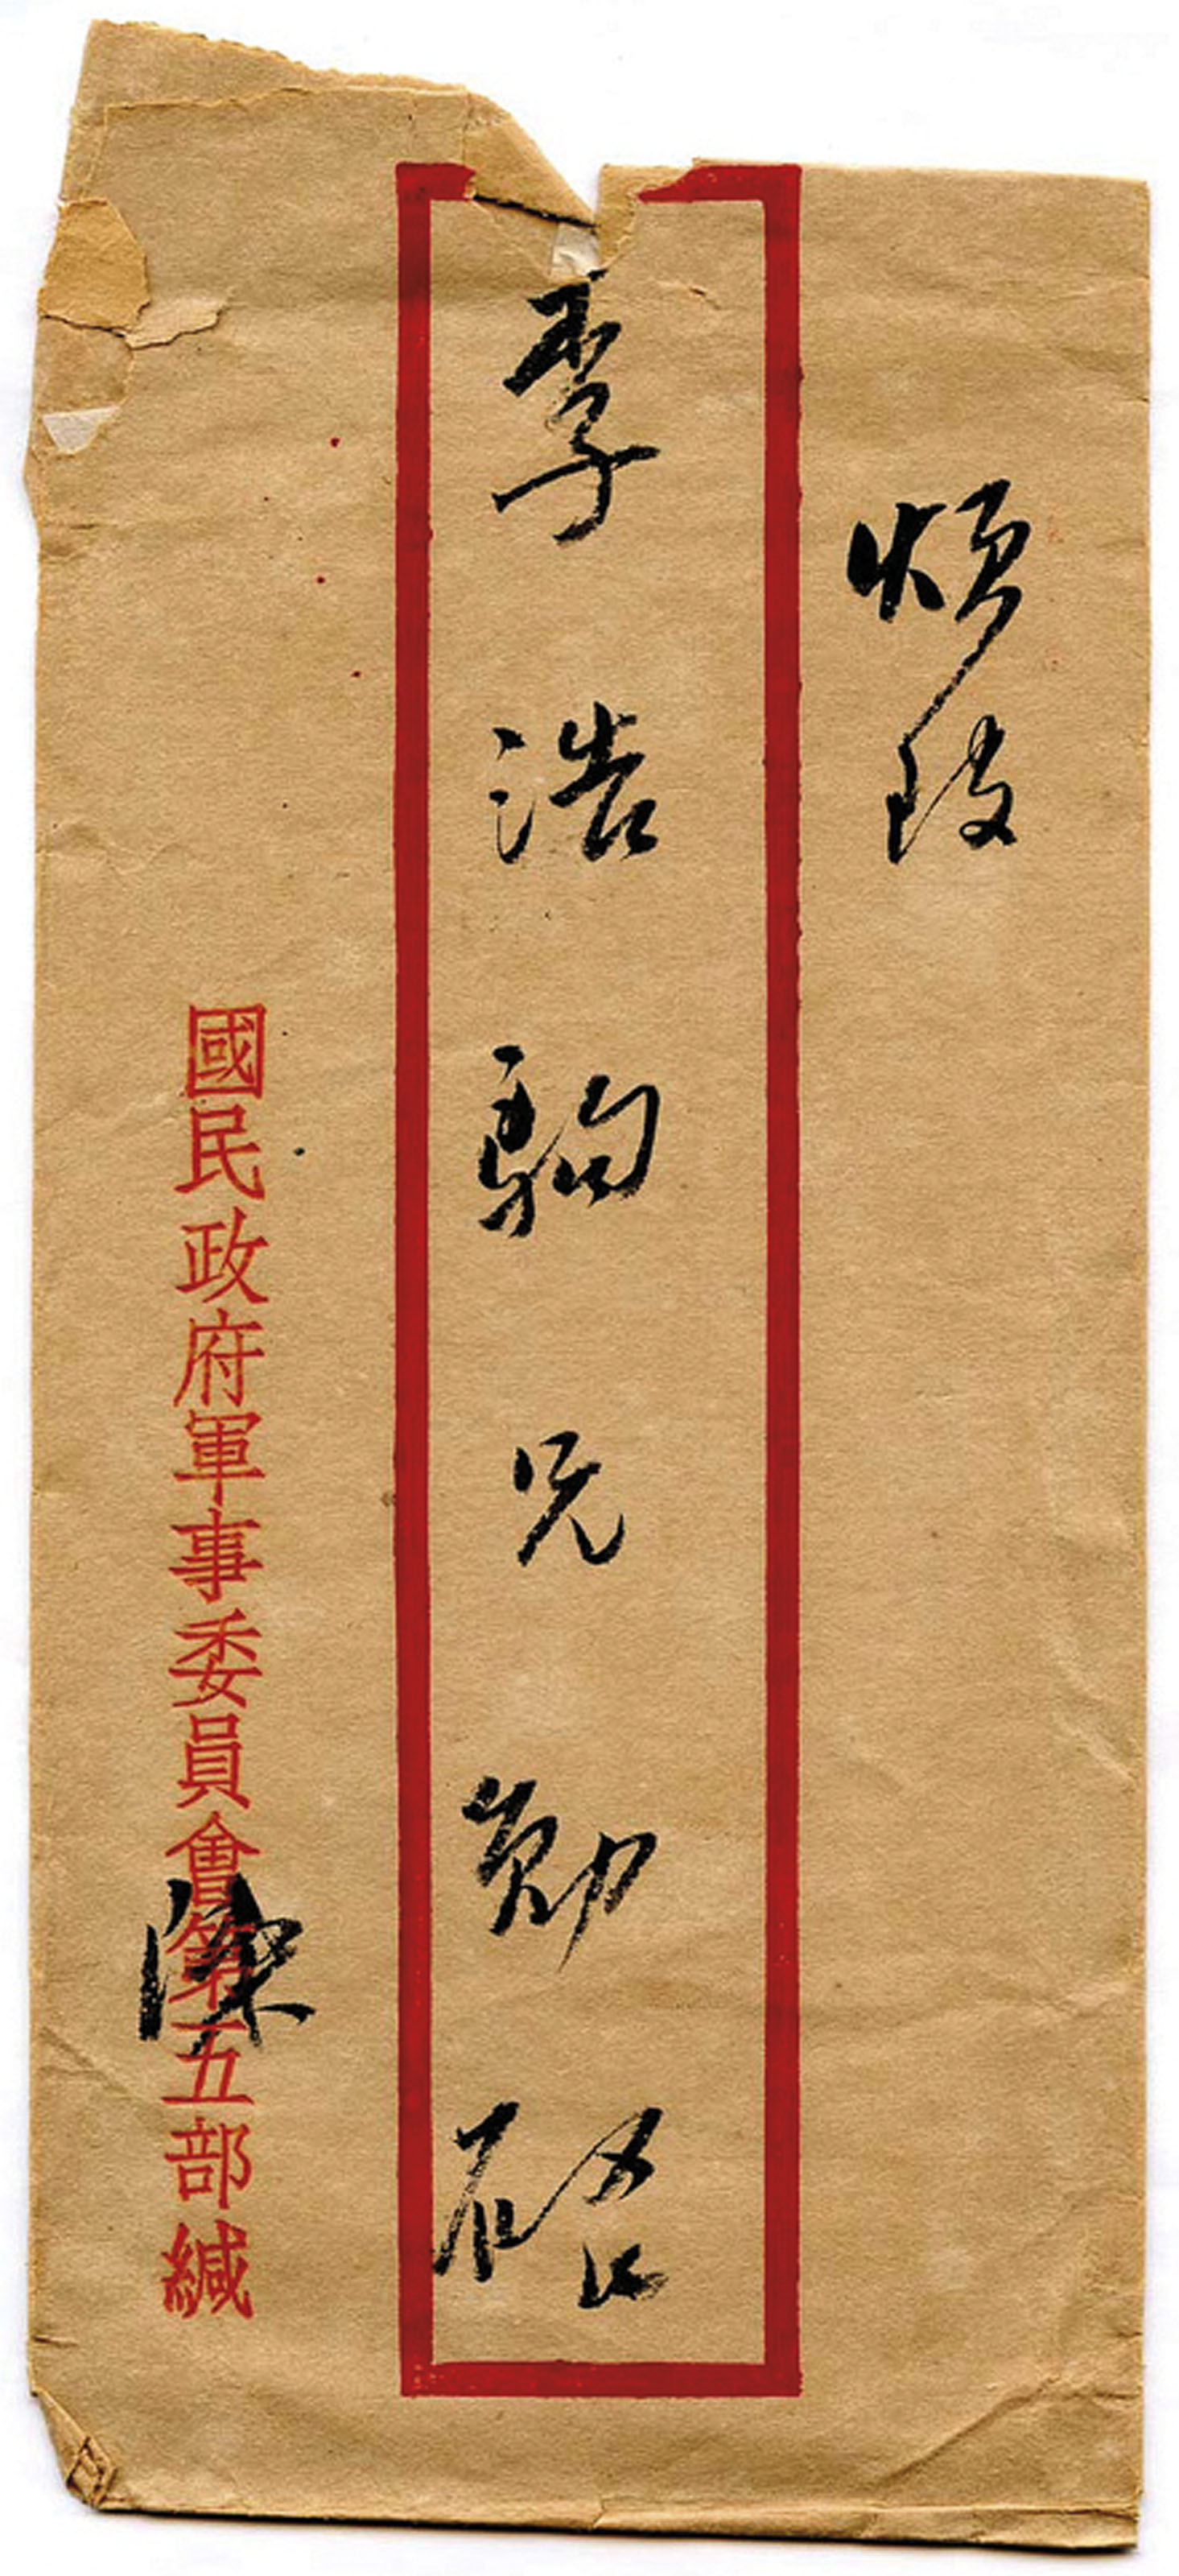 煩致
李浩駒兄勛啟
國民政府軍事委員會第五部緘
陳